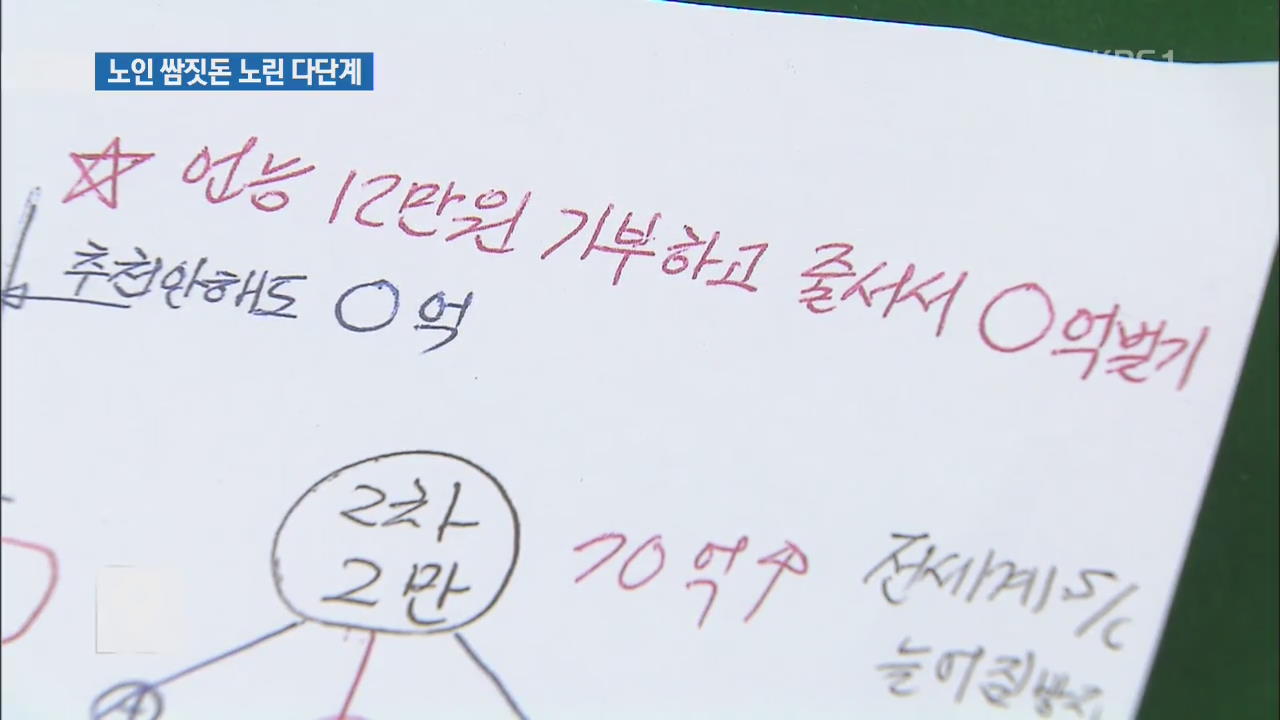 노인 쌈짓돈 노린 다단계
KBS 1
☆ 언능 12만원 기부하고 줄서서 〇억벌기
추천안해도 〇억
2차
2만
70억↑
전세계 S/C
늘어질